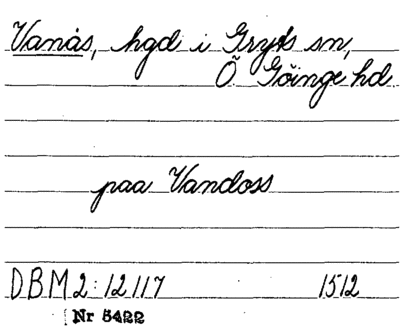 Vanås, hgd i Gryts sn,
Ö Göinge hd.
paa Vandoss
DBM 2:12117 1512
Nr 5422